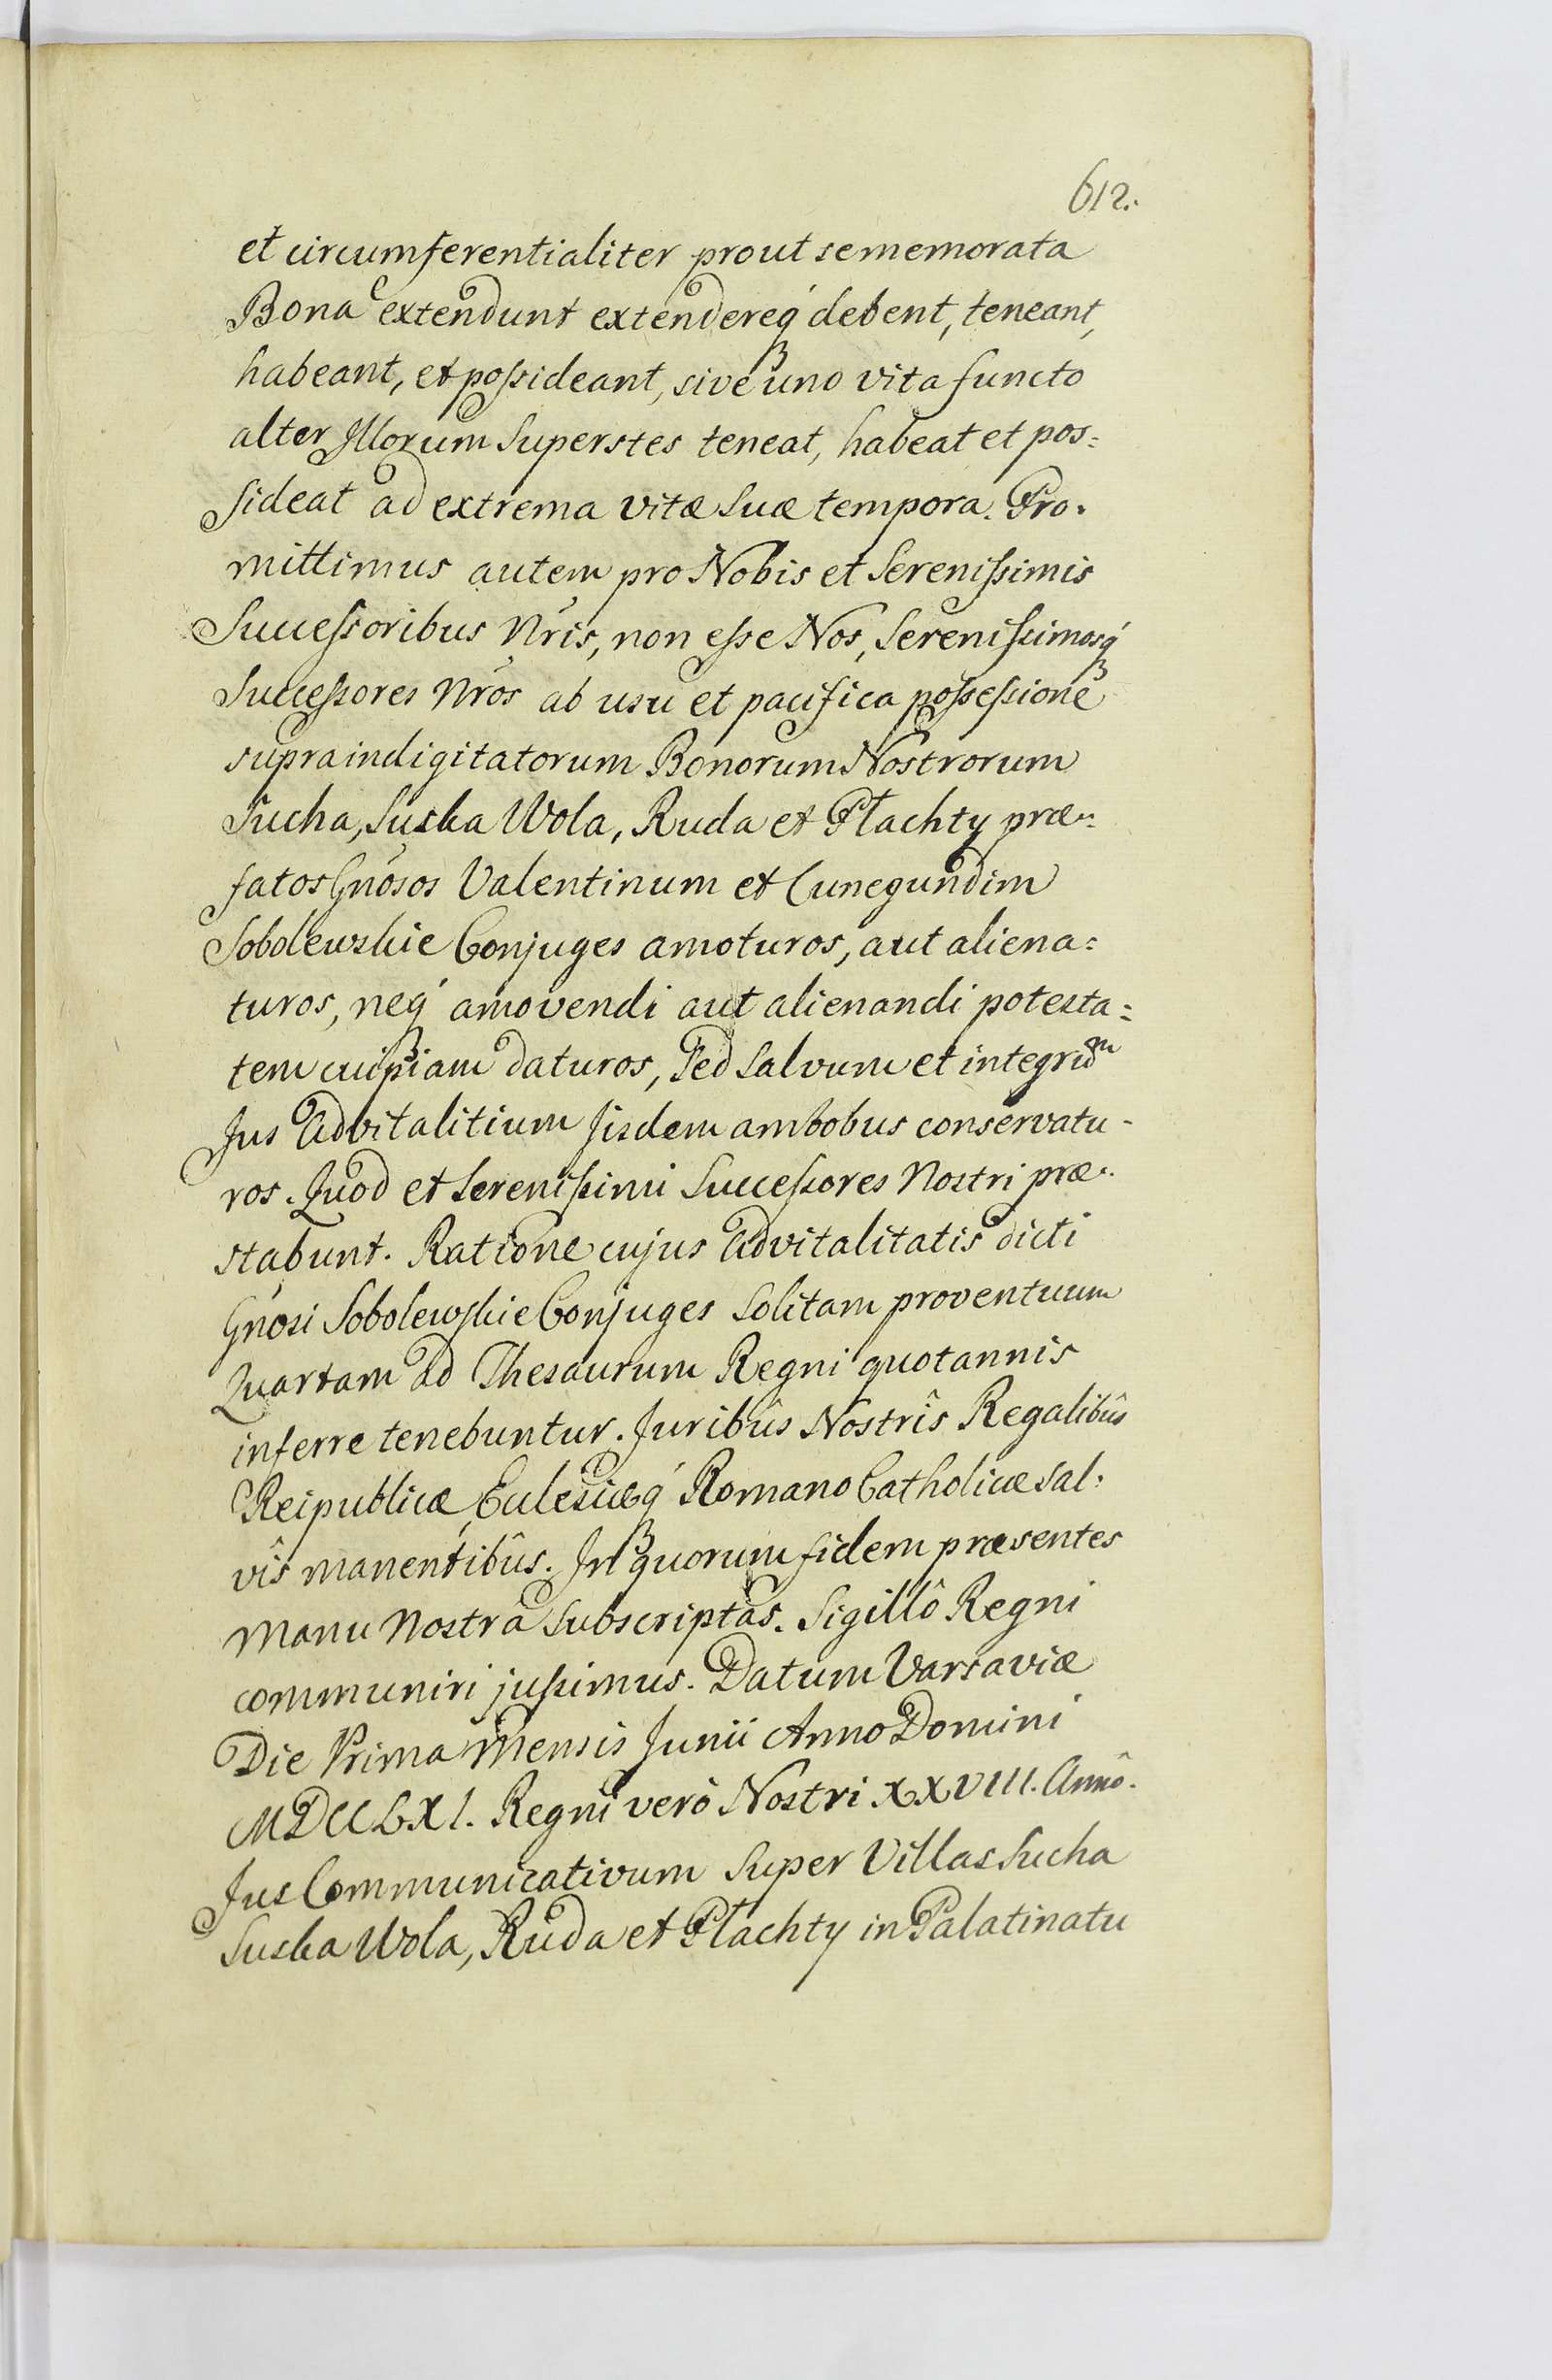 612.
et circumferentialiter prout se memorata
Bona extendunt extendereq́ debent, teneant,
habeant, et poſsideant, sive uno vita functo
alter Illorum Superstes teneat, habeat et pos=
sideat ad extrema vitæ suæ tempora. Pro=
mittimus autem pro Nobis et Sereniſsimis
Succeſsoribus Nr̃is, non eſse Nos, Sereniſsimosq́
Succeſsores Nr̃os ab usu et pacifica poſseſsione
supraindigitatorum Bonorum Nostrorum
Sucha, Suska Wola, Ruda et Płachty præ=
fatos Gñosos Valentinum et Cunegundim
Sobolewskie Conjuges amoturos, aut aliena=
turos, neq́ amovendi aut alienandi potesta=
tem cuipiam daturos, Sed salvum et integrũm
Jus Advitalitium Iisdem ambobus conservatu-
ros. Quod et Sereniſsimi Succeſsores Nostri præ=
stabunt. Ratione cujus Advitalitatis dicti
Gñosi Sobolewskie Conjuges solitam proventuum
Quartam ad Thesaurum Regni quotannis
inferre tenebuntur. Juribûs Nostrîs Regalibûs
Reipublicæ, Eclesiæq́ Romano Catholicæ sal=
vîs manentibûs. In quorum fidem præsentes
Manu Nostrâ subscriptas. Sigillô Regni
communiri juſsimus. Datum Varsaviæ
Die Prima Mensis Junii Anno Domini
MDCCLXI. Regni verò Nostri XXVIII. Annô.
Jus Communicativum super Villas Sucha
Suska Wola, Ruda et Płachty in Palatinatu